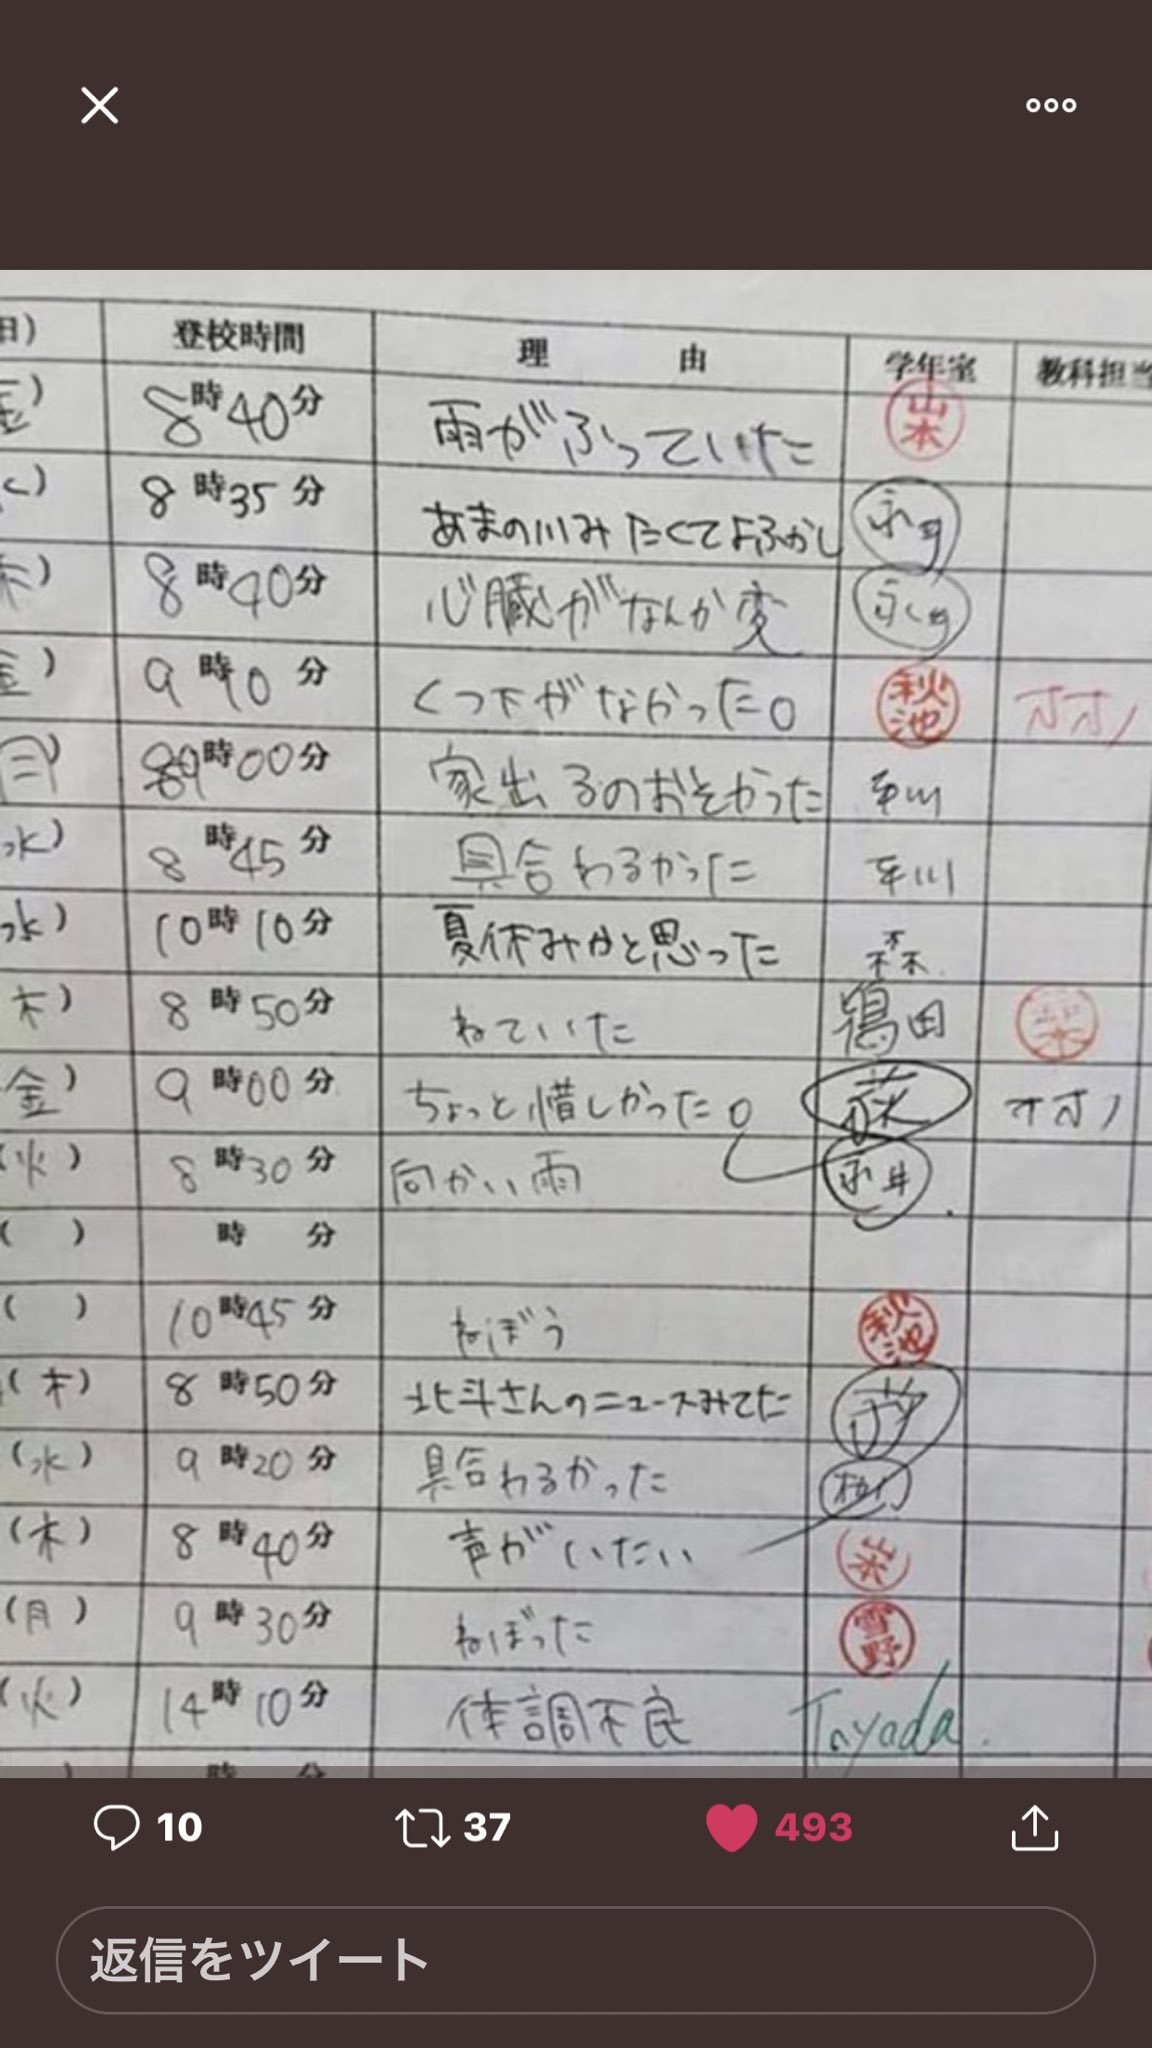 日) 登校時間 理由 学年室 教科担当
金) 8時40分 雨がふっていた 山本
8時35分 あまの川みたくてよふかし 永井
木) 8時40分 心臓がなんか変 永井
金) 9時10分 くつ下がなかった。 秋池 オオノ
月) 9時00分 家出るのおそかった 平川
水) 8時45分 具合わるかった 平川
水) 10時10分 夏休みかと思った 森
木) 8時50分 ねていた 鶴田
金) 9時00分 ちょっと惜しかった。 オオノ
(火) 8時30分 向かい雨 永井
( ) 時 分
( ) 10時45分 ねぼう 秋池
(木) 8時50分 北斗さんのニュースみてた
(水) 9時20分 具合わるかった
(木) 8時40分 声がいたい
(月) 9時30分 ねぼった 雪野
(火) 14時10分 体調不良 Tayada
) 時 分
10 37 493
返信をツイート